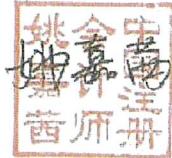 中国注册
会计师
姚嘉茜
姚嘉茜